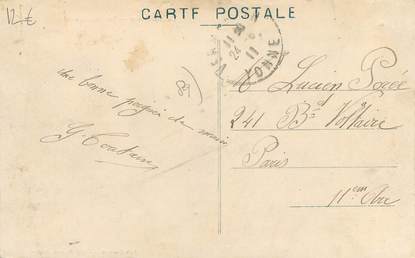 12 €
CARTE POSTALE
11 30
24 - 6
11
YONNE
89
une bonne poignée de main
M Lucien
241 Bd Voltaire
Paris
11em Arr